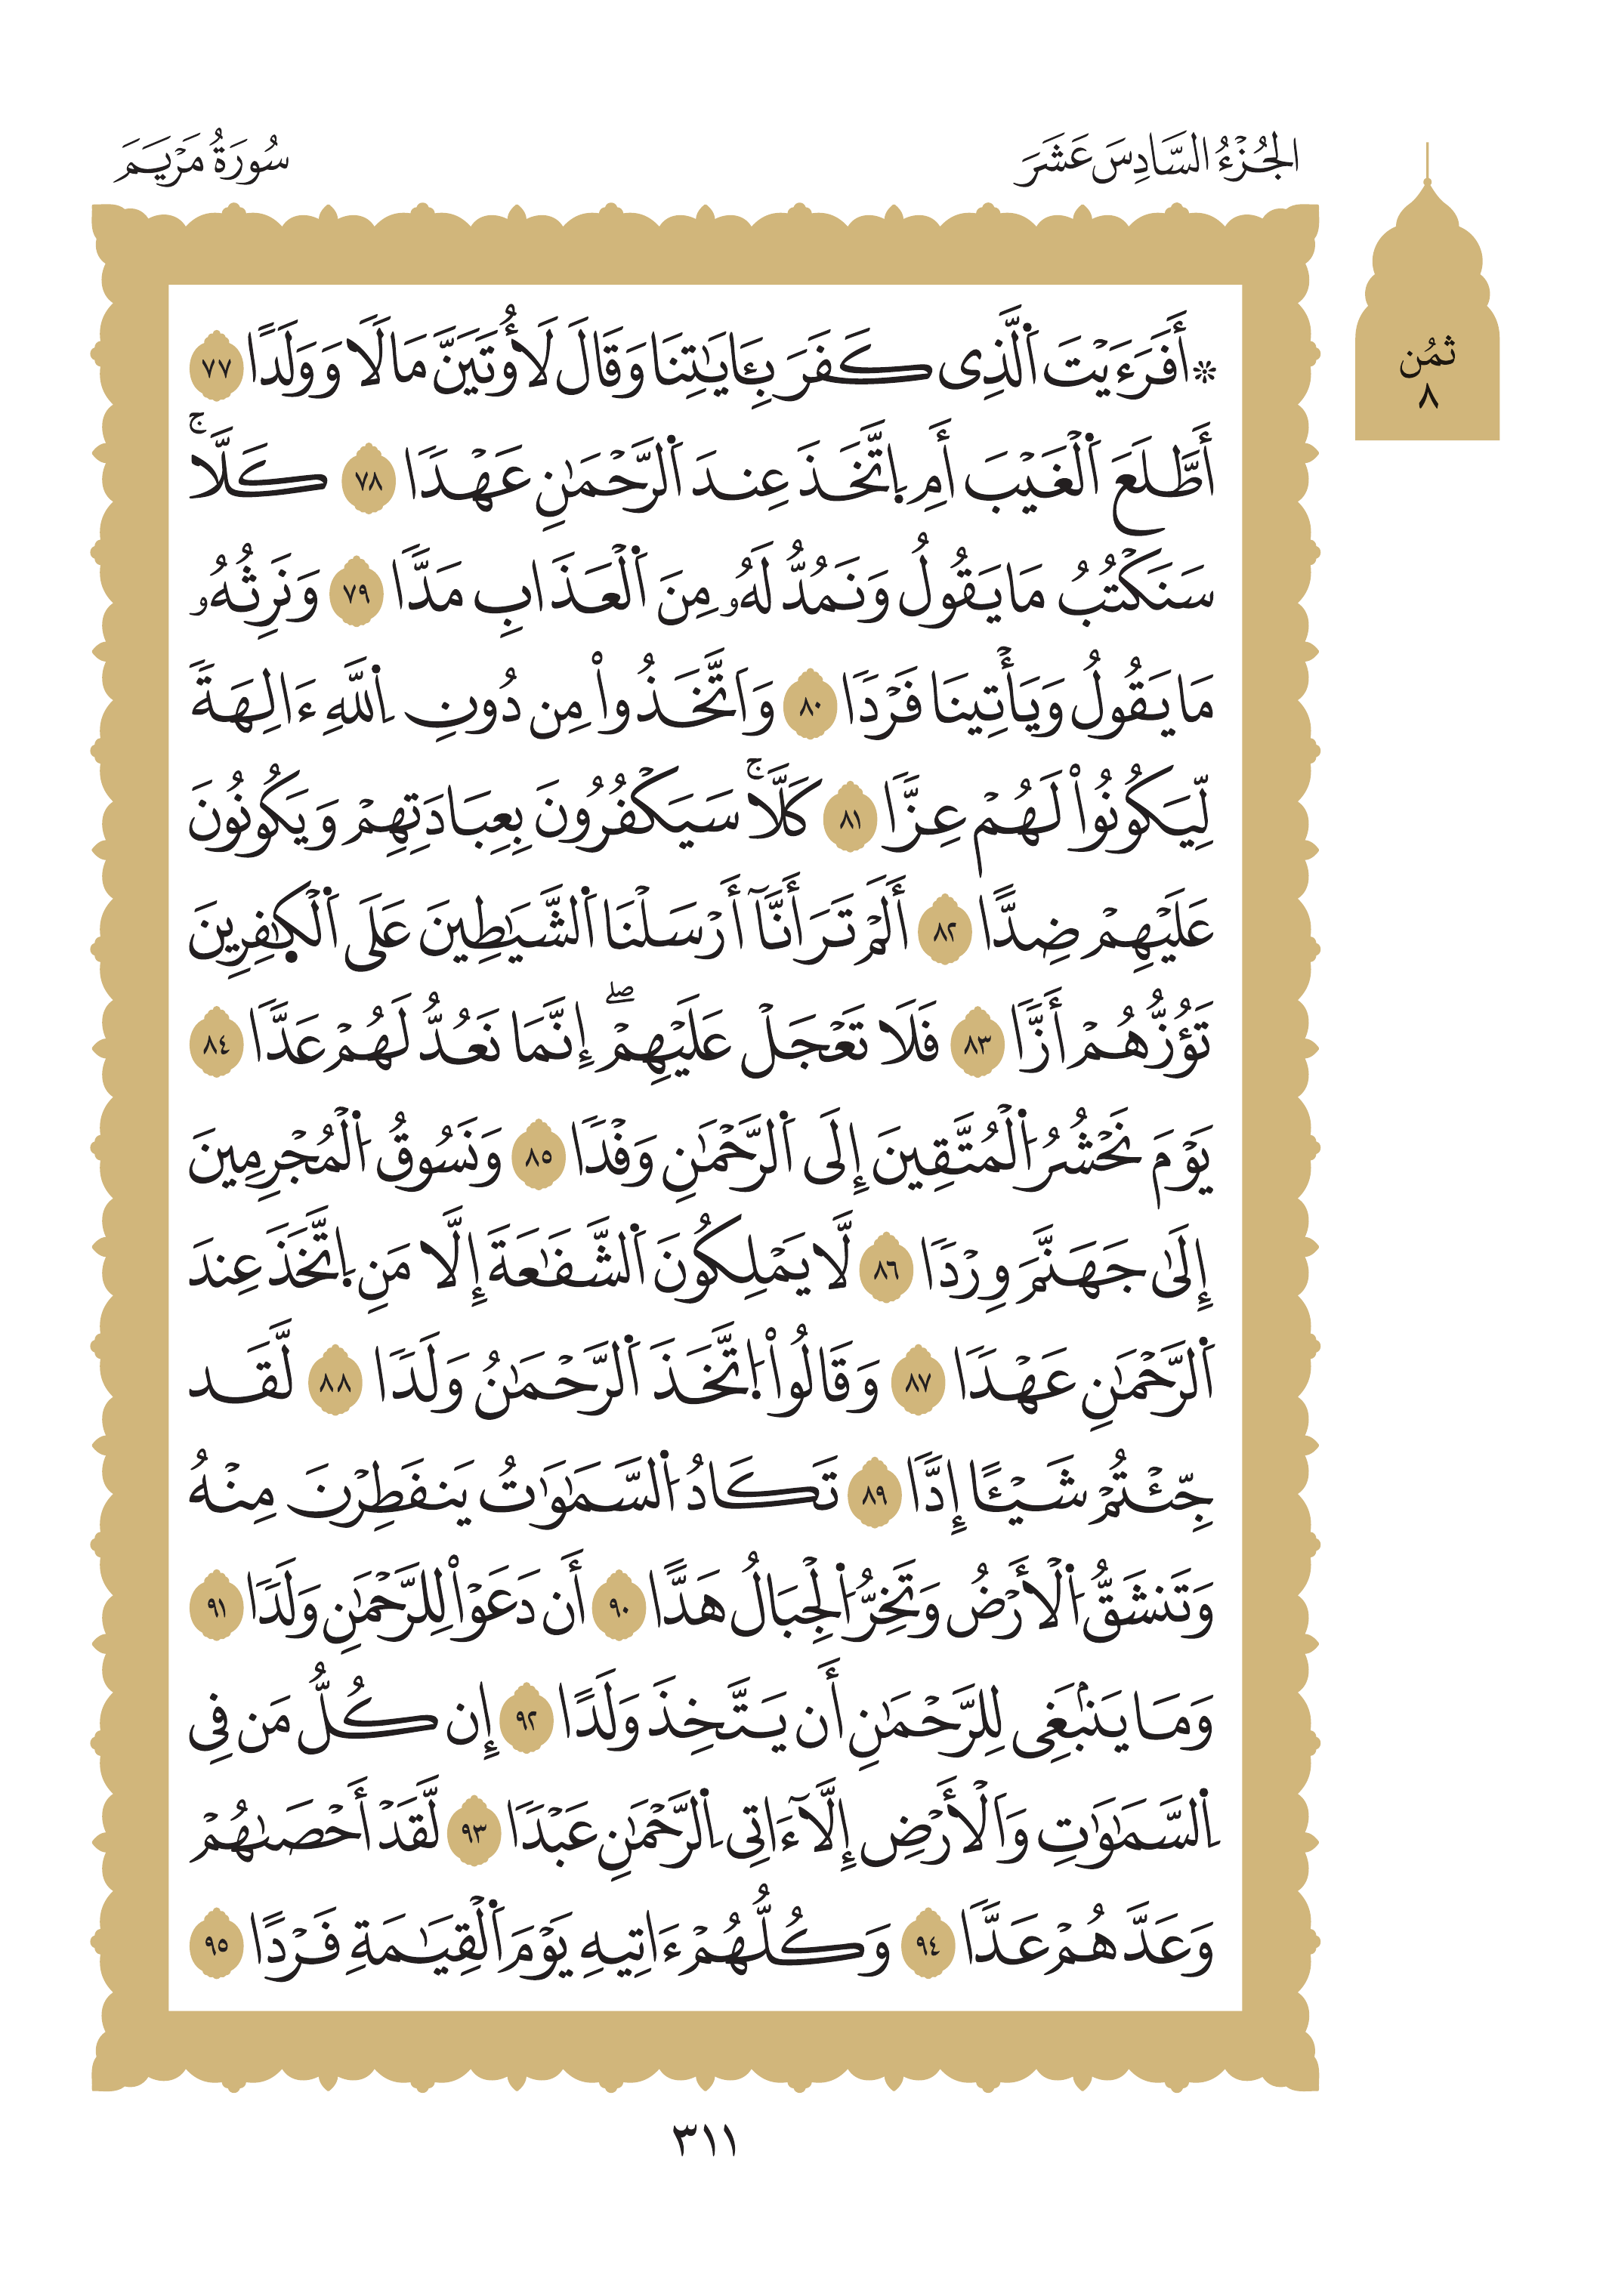 الجُزْءُ السَّادِسَ عَشَرَ
سُورَةُ مَرْيَمَ
ثمُن
٨
۞أَفَرَءَيْتَ ٱلَّذِى كَفَرَ بِـَٔايَٰتِنَا وَقَالَ لَأُوتَيَنَّ مَالًا وَوَلَدًا ٧٧
أَطَّلَعَ ٱلْغَيْبَ أَمِ ٱِتَّخَذَ عِندَ ٱلرَّحْمَٰنِ عَهْدًا ٧٨ كَلَّاۚ
سَنَكْتُبُ مَا يَقُولُ وَنَمُدُّ لَهُۥ مِنَ ٱلْعَذَابِ مَدًّا ٧٩ وَنَرِثُهُۥ
مَا يَقُولُ وَيَأْتِينَا فَرْدًا ٨٠ وَٱتَّخَذُواْ مِن دُونِ ٱِللَّهِ ءَالِهَةً
لِّيَكُونُواْ لَهُمْ عِزًّا ٨١ كَلَّاۚ سَيَكْفُرُونَ بِعِبَادَتِهِمْ وَيَكُونُونَ
عَلَيْهِمْ ضِدًّا ٨٢ أَلَمْ تَرَ أَنَّآ أَرْسَلْنَا ٱلشَّيَٰطِينَ عَلَى ٱلْكٰ۪فِرِينَ
تَؤُزُّهُمْ أَزًّا ٨٣ فَلَا تَعْجَلْ عَلَيْهِمْۖ إِنَّمَا نَعُدُّ لَهُمْ عَدًّا ٨٤
يَوْمَ نَحْشُرُ ٱلْمُتَّقِينَ إِلَى ٱلرَّحْمَٰنِ وَفْدًا ٨٥ وَنَسُوقُ ٱلْمُجْرِمِينَ
إِلَىٰ جَهَنَّمَ وِرْدًا ٨٦ لَّا يَمْلِكُونَ ٱلشَّفَٰعَةَ إِلَّا مَنِ ٱِتَّخَذَ عِندَ
ٱلرَّحْمَٰنِ عَهْدًا ٨٧ وَقَالُواْ ٱتَّخَذَ ٱلرَّحْمَٰنُ وَلَدًا ٨٨ لَّقَد
جِّئْتُمْ شَيْـًٔا إِدًّا ٨٩ تَكَادُ ٱلسَّمَٰوَٰتُ يَنفَطِرْنَ مِنْهُ
وَتَنشَقُّ ٱلْأَرْضُ وَتَخِرُّ ٱلْجِبَالُ هَدًّا ٩٠ أَن دَعَوْاْ لِلرَّحْمَٰنِ وَلَدًا ٩١
وَمَا يَنۢبَغِى لِلرَّحْمَٰنِ أَن يَتَّخِذَ وَلَدًا ٩٢ إِن كُلُّ مَن فِى
ٱِلسَّمَٰوَٰتِ وَٱلْأَرْضِ إِلَّآ ءَاتِى ٱِلرَّحْمَٰنِ عَبْدًا ٩٣ لَّقَدْ أَحْصَىٰهُمْ
وَعَدَّهُمْ عَدًّا ٩٤ وَكُلُّهُمْ ءَاتِيهِ يَوْمَ ٱلْقِيَٰمَةِ فَرْدًا ٩٥
٣١١